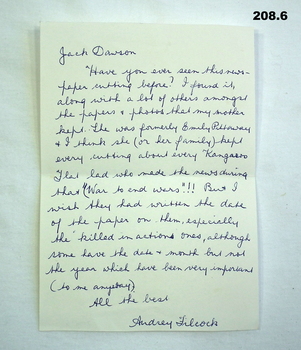 208.6
Jack Dawson
"Have you ever seen this news-
paper cutting before? I found it,
along with a lot of others amongst
the papers & photos that my mother
kept. She was formerly Emily
& I think she (or her family) kept
every cutting about every Kangaroo
Flat lad who made the news during
that "War to end wars"!!! But I
wish they had written the date
of the paper on them, especially
the 'killed in action' ones, although
some have the date & month but not
the year which have been very important
(to me anyway)
All the best
Audrey